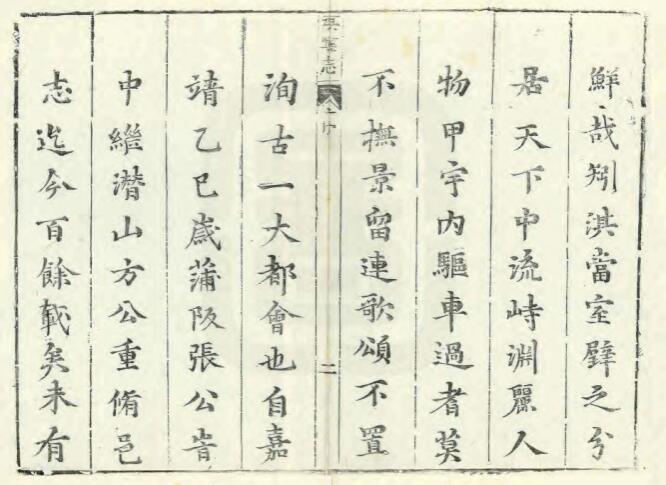 鮮哉矧淇當室壁之分
居天下中流峙淵麗人
物甲宇內驅車過者莫
不撫景留連歌頌不置
淇縣志 序 二
洵古一大都會也自嘉
靖乙巳歲蒲阪張公肯
中繼濳山方公重脩邑
志迄今百餘載矣未有